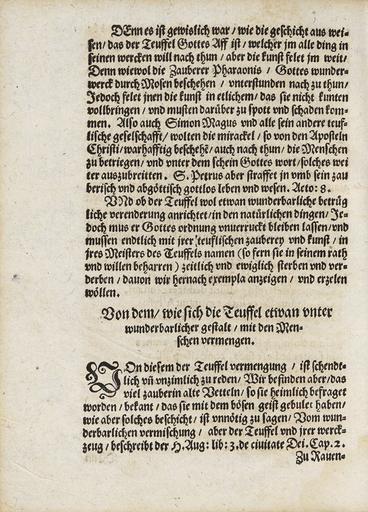 DEnn es ist gewislich war / wie die geschicht aus wei-
sen / das der Teuffel Gottes Aff ist / welcher jm alle ding in
seinen wercken will nach thun / aber die kunst felet jm weit /
Denn wiewol die Zauberer Pharaonis / Gottes wunder-
werck durch Mosen beschehen / vnterstunden nach zu thun /
Jedoch felet jnen die kunst in etlichem / das sie nicht kunten
vollbringen / vnd musten darüber zu spott vnd schaden kom
men. Also auch Simon Magus vnd alle sein andere teuf-
lische geselschafft / wolten die mirackel / so von den Aposteln
Christi / warhafftig beschehē / auch nach thun / die Menschen
zu betriegen / vnd vnter dem schein Gottes wort / solches wei
ter auszubreitten. S. Petrus aber straffet jn vmb sein zau
berisch vnd abgöttisch gottlos leben vnd wesen. Acto: 8.
VNd ob der Teuffel wol etwan wunderbarliche betrüg
liche verenderung anrichtet / in den natürlichen dingen / Je-
doch mus er Gottes ordnung vnuerruckt bleiben lassen / vnd
mussen endtlich mit jrer teuflischen zauberey vnd kunst / in
jres Meisters des Teuffels namen (so fern sie in seinem rath
vnd willen beharren) zeitlich vnd ewiglich sterben vnd ver-
derben / dauon wir hernach exempla anzeigen / vnd erzelen
wöllen.
Von dem / wie sich die Teuffel etwan vnter
wunderbarlicher gestalt / mit den Men-
schen vermengen.
VOn diesem der Teuffel vermengung / ist schendt-
lich vñ vnzimlich zu reden / Wir befinden aber / das
viel zauberin alte Vetteln / so sie heimlich befraget
worden / bekant / das sie mit dem bösen geist gebulet haben /
wie aber solches beschicht / ist vnnötig zu sagen / Vom wun-
derbarlichen vermischung / aber der Teuffel vnd jrer werck-
zeug / beschreibt der H. Aug: lib: 3. de ciuitate Dei. Cap. 2.
Zu Rauen-